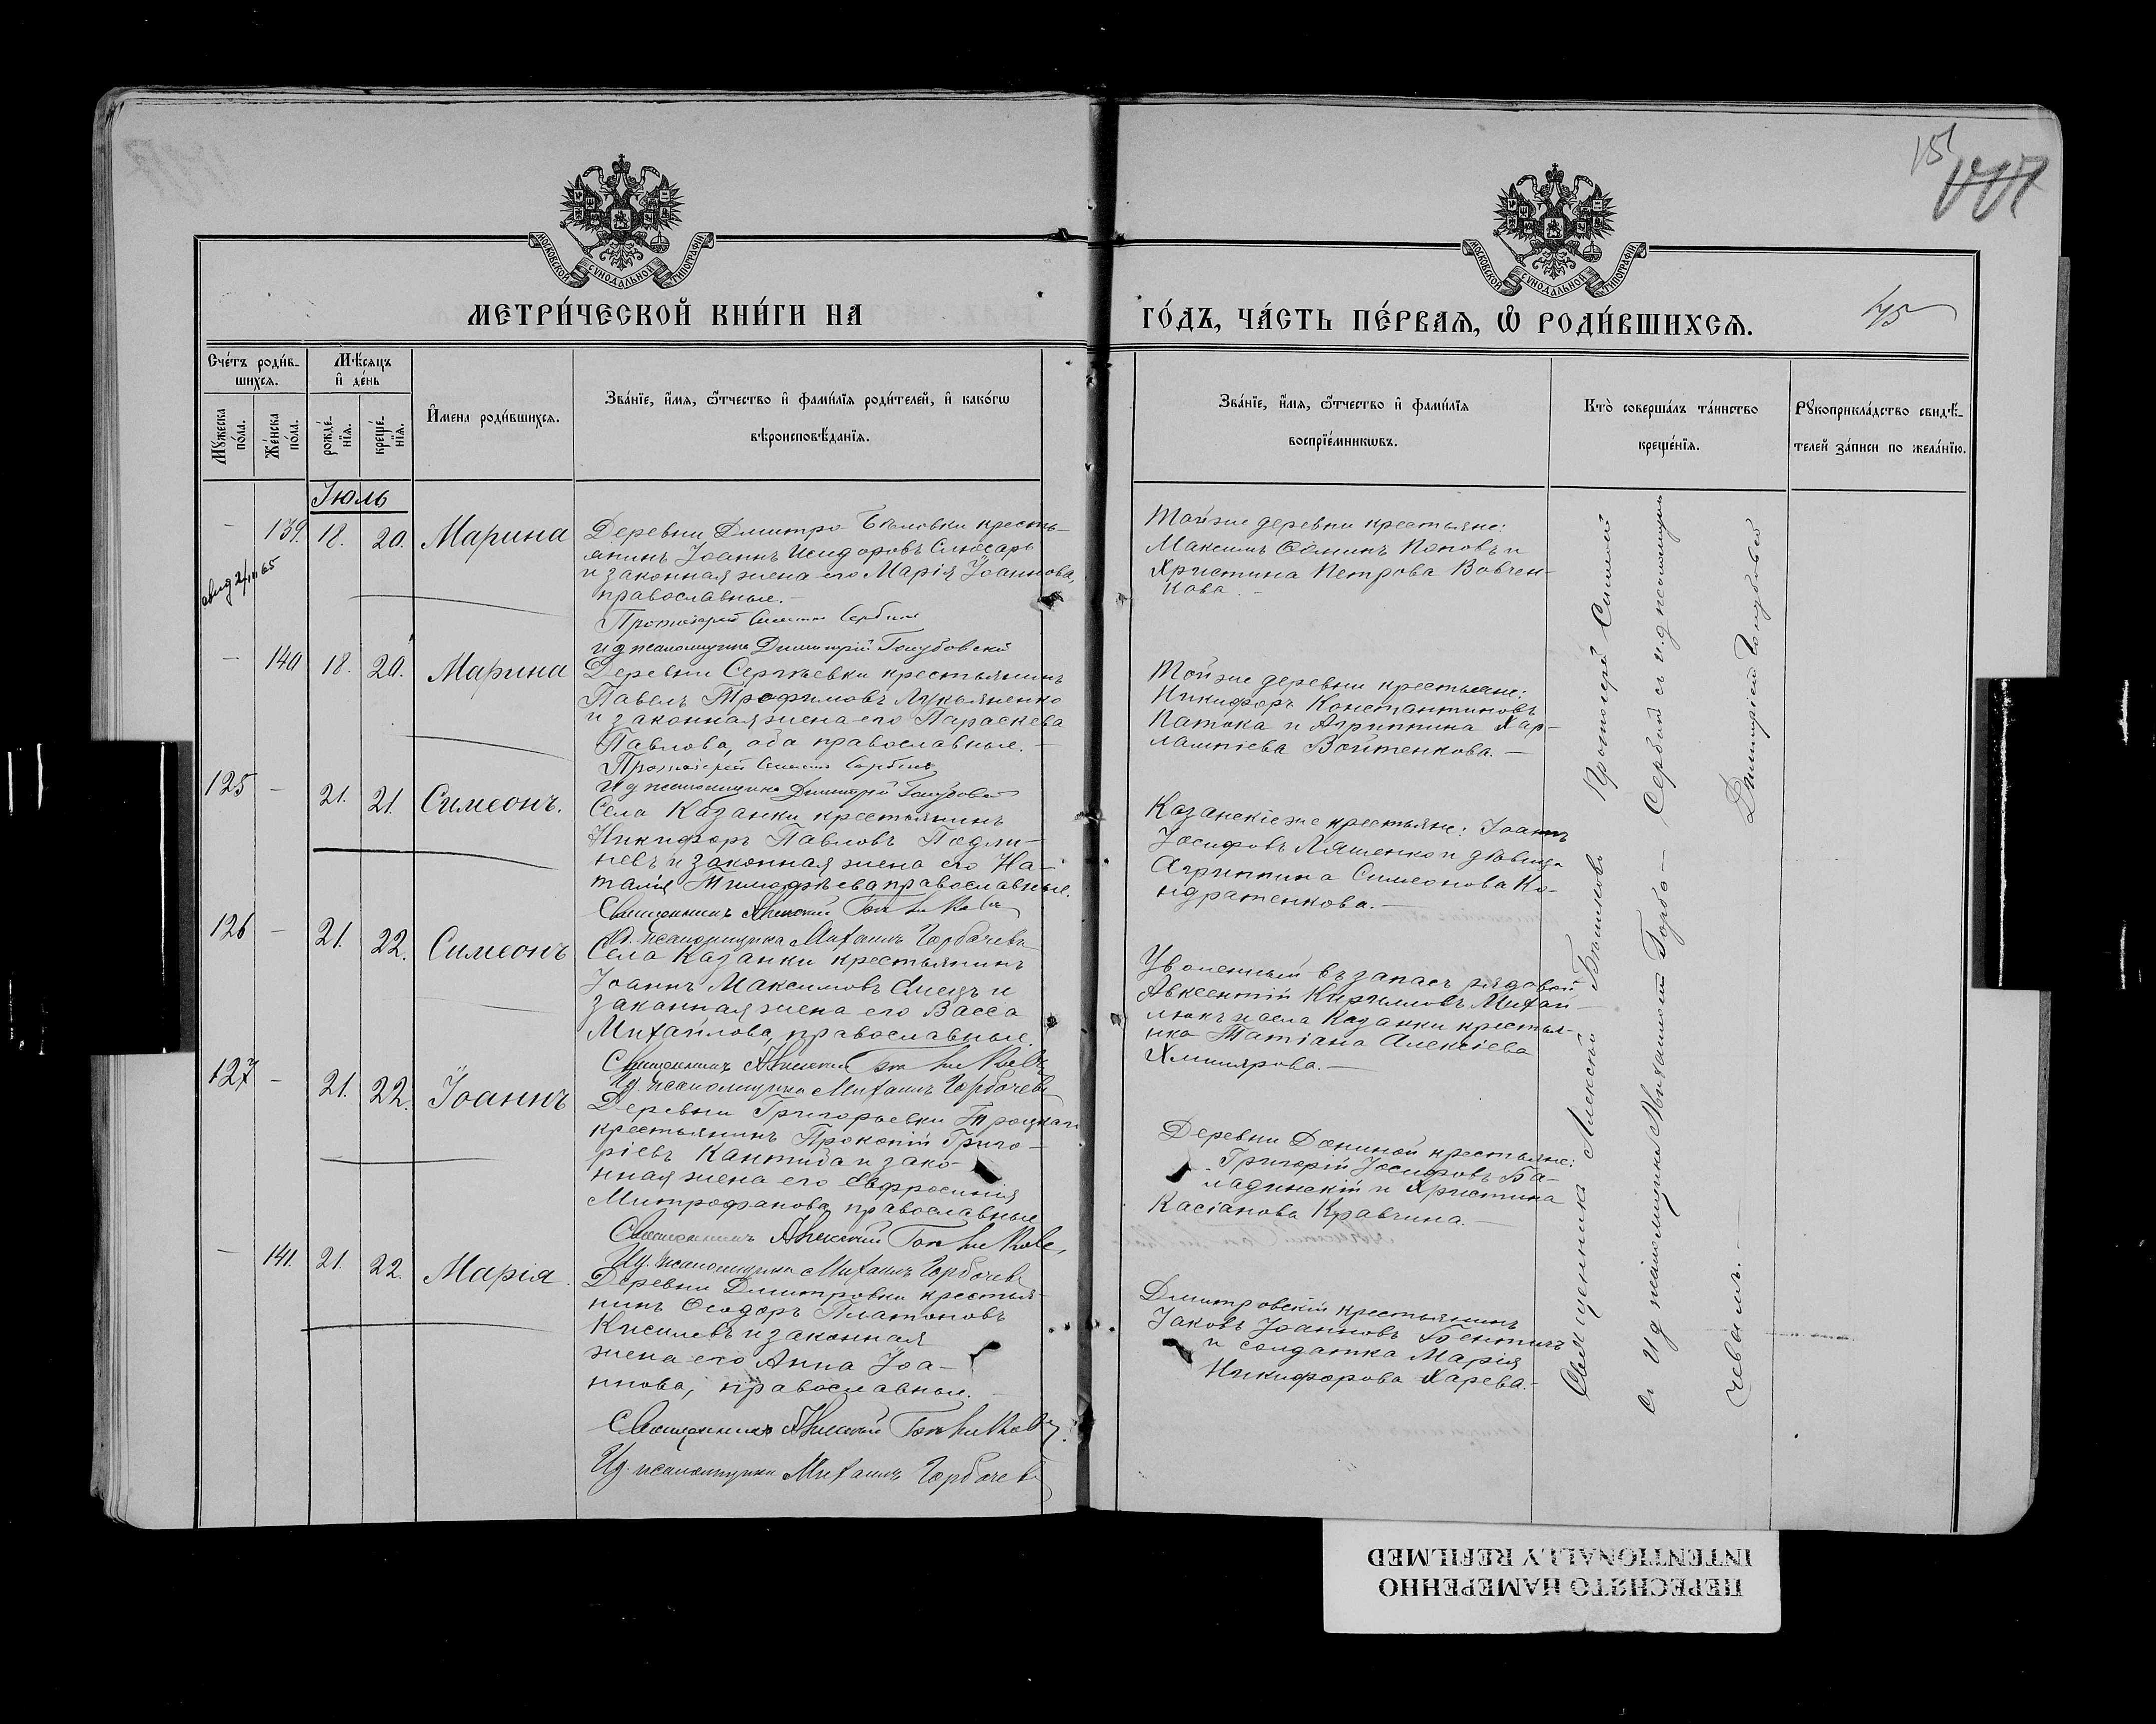 15
МОСКОВСКОЙ СУНОДАЛЬНОЙ ТИПОГРАФІИ
МОСКОВСКОЙ СУНОДАЛЬНОЙ ТИПОГРАФІИ
МЕТРИ́ЧЕСКОЙ КНИ́ГИ НА
ГО́ДЪ, ЧА́СТЬ ПЕ́РВАЯ, Ѽ РОДИ́ВШИХСЯ.
Сче́тъ роди́в-
шихся.
Мѣ́сяцъ
и҆ де́нь
Мꙋ́жеска
по́ла.
Же́нска
по́ла.
рожде́-
нїя.
креще́-
нїя.
И҆́мена роди́вшихся.
Зва́нїе, и҆́мя, ѻ҆́тчество и҆ фами́лїя роди́телей, и҆ како́гѡ
вѣроисповѣ́данїя.
Зва́нїе, и҆́мя, ѻ҆́тчество и҆ фами́лїя
воспрїе́мникѡвъ.
Кто̀ соверша́лъ та́инство
креще́нїя.
Рꙋкоприкла́дство свидѣ́-
телей за́писи по жела́нїю.
Іюль
- 139. 18. 20. Марина
Деревни Дмитро-Бѣловки кресть-
янинъ Іоаннъ Исидоровъ Слюсарь
и законная жена его Марія Іоаннова,
православные.-
Протоіерей Симеон Сербин
и д псаломщика Димитрій Голубовскій
Той же деревни крестьяне:
Максимъ Ѳоминъ Поповъ и
Христина Петрова Вовчен-
кова.-
- 140 18. 20. Марина
Деревни Сергѣевки крестьянинъ
Павелъ Трофимовъ Лукьяненко
и законная жена его Параскева
Павлова, оба православные.-
Протоіерей Симеон Сербинъ
И д псаломщика Димитрій
Той же деревни крестьяне:
Никифоръ Константиновъ
Патока и Агриппина Хар-
лампіева Войтенкова.-
125 - 21. 21. Симеонъ.
Села Казанки крестьянинъ
Никифоръ Павловъ
и законная жена его На-
талія Тимофѣева православные.
Священникъ Алексій
И.д. псаломщика Михаилъ Горбачевъ
Казанскіе же крестьяне: Іоаннъ
Іосифовъ Ляшенко и дѣвица
Агриппина Симеонова Ко-
ндратенкова.-
126 - 21. 22. Симеонъ
Села Казанки крестьянинъ
Іоаннъ Максимовъ и
законная жена его Васса
Михайлова, православные.
Священникъ Алексій
И.д. псаломщика Михаилъ Горбачевъ
Уволенный въ запасъ рядовой
Авксентій Кирилловъ Михай-
люкъ и села Казанки крестья-
нка Татіана Алексіева
Хмилярова.-
127 - 21. 22. Іоаннъ
Деревни Григорьевки
крестьянинъ Прокопій Григо-
ріевъ и зако-
нная жена его Евфросинія
Митрофанова, православные
Священникъ Алексій
И.д. псаломщика Михаилъ Горбачевъ
Деревни Дониной крестьяне:
Григорій Іосифовъ Ба-
ладинскій и Христина
Касіанова Кравчина.-
- 141. 21. 22. Марія.
Деревни Дмитровки крестья-
нинъ Ѳеодоръ Платоновъ
Киселевъ и законная
жена его Анна Іоа-
ннова, православные.-
Священникъ Алексій
И.д. псаломщика Михаилъ Горбачевъ
Дмитровскій крестьянинъ
Іаковъ Іоанновъ
и солдатка Марія
Никифорова Харева.-
Протоіерей Симеон
Сербин с и. д псаломщика
Димитріем
Священника Алексій
с И д псаломщика Михаилом Горба-
чевым.-
ПЕРЕСНЯТО НАМЕРЕННО
INTENTIONALLY REFILMED